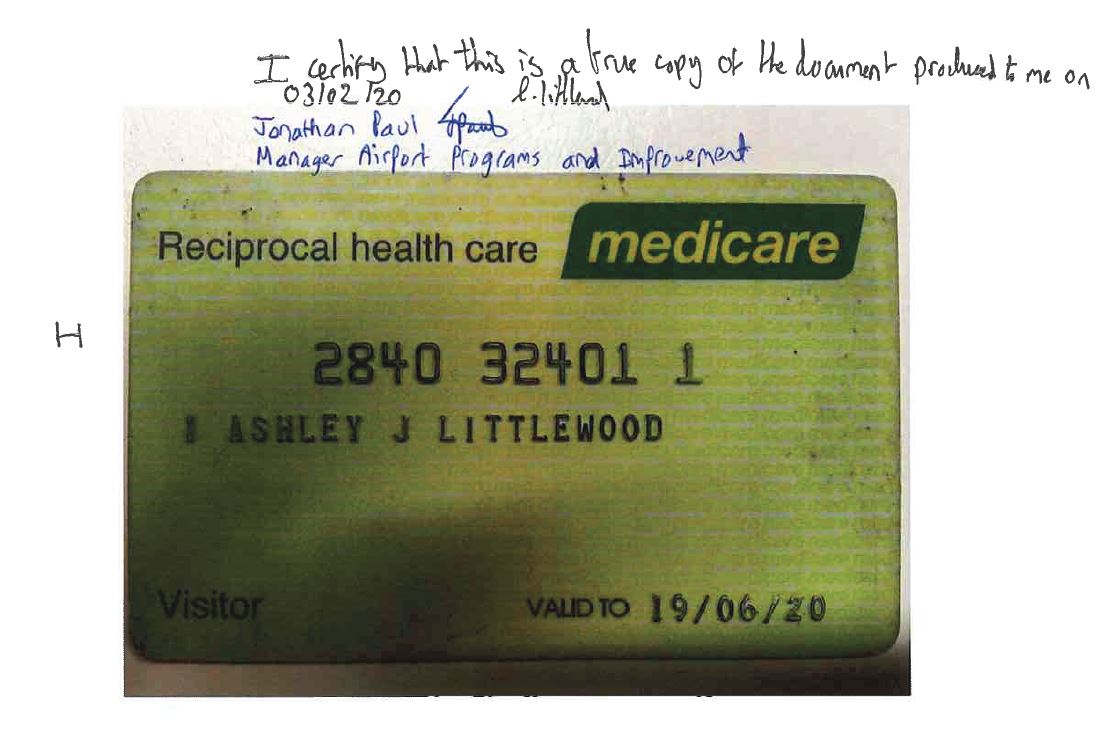 I certify that this is a true copy of the document produced to me on
03/02/20
Jonathan Paul
Manager Airport Programs and Improvement
Reciprocal health care medicare
H
2840 32401 1
1 ASHLEY J LITTLEWOOD
Visitor VALID TO 19/06/20